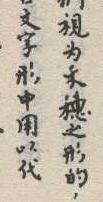 視为禾穗之形的，
文字形中用以代